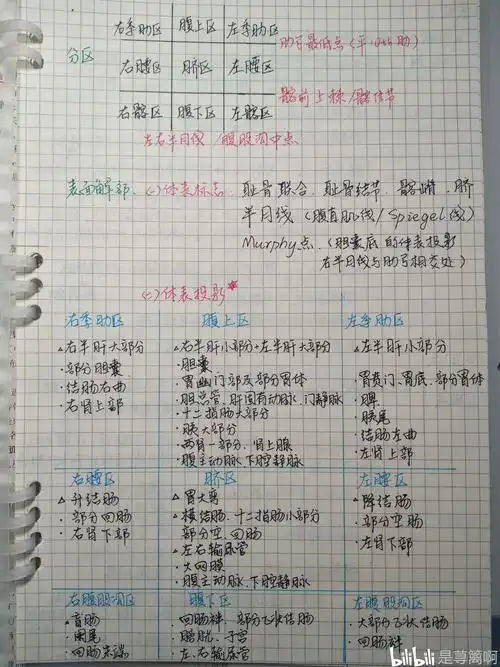 右季肋区 腹上区 左季肋区
肋弓最低点(平10th肋)
分区 右腰区 脐区 左腰区
髂前上棘/髂结节
右髂区 腹下区 左髂区
左右半月线/腹股沟中点
表面解剖. (一)体表标志. 耻骨联合、耻骨结节、髂嵴、脐
半月线(腹直肌线/Spiegel线)
Murphy点.(胆囊底的体表投影
右半月线与肋弓相交处)
(二)体表投影*
右季肋区 腹上区 左季肋区
△右半肝大部分 △右半肝小部分+左半肝大部分 △左半肝小部分
·部分胆囊 ·胆囊
·结肠右曲 ·胃幽门部及部分胃体 ·胃贲门、胃底、部分胃体
·右肾上部 ·胆总管、肝固有动脉、门静脉 ·脾
·十二指肠大部分 ·胰尾
·胰大部分 ·结肠左曲
·两肾一部分、肾上腺 ·左肾上部
·腹主动脉、下腔静脉
右腰区 脐区 左腰区
△升结肠 △胃大弯 △降结肠
·部分回肠 △横结肠、十二指肠小部分 ·部分空肠
·右肾下部 部分空、回肠 ·左肾下部
△左右输尿管
·大网膜
·腹主动脉、下腔静脉
右腹股沟区 腹下区 左腹股沟区
·盲肠 ·回肠袢、部分乙状结肠 ·大部分乙状结肠
·阑尾 ·膀胱、子宫 ·回肠袢
·回肠末端 ·左、右输尿管
bilibili@是荨篱啊